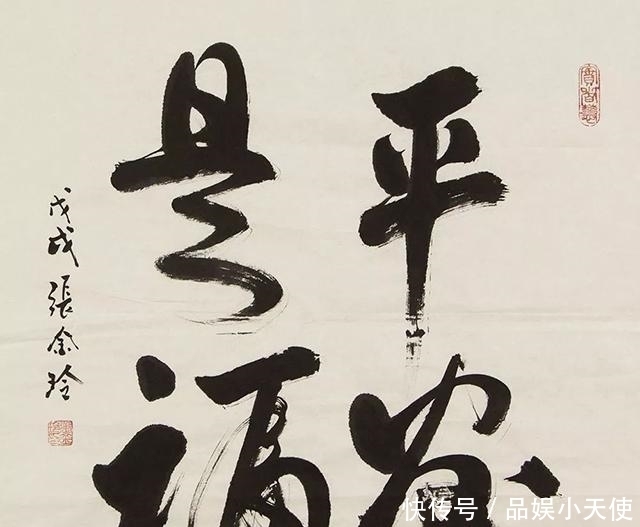 平安
是福
戊戌張金玲
快传号 / 品娱小天使